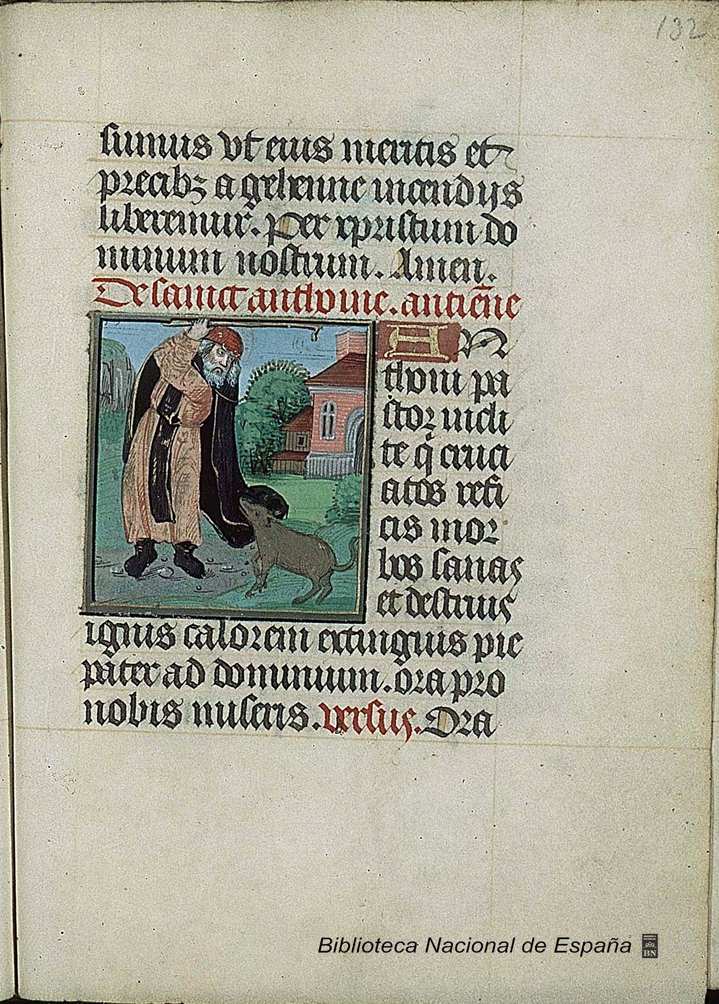 132
sumus vt eius meritis et
precibz a gehenne incendijs
liberemur. Per xpristum do
minum nostrum. Amen.
De sanct anthonie. antiēne
AN
thoni pa
stor incli
te q̄ cruci
atos refi
cis mor
bos sanas
et destruis
ignis calorem extinguis pie
pater ad dominum. ora pro
nobis miseris. versus. Ora
Biblioteca Nacional de España
BN